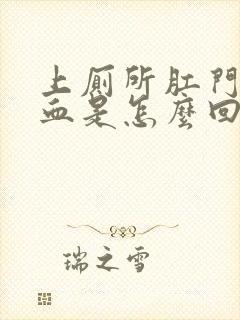 上厕所肛門
血是怎麼回
瑞之雪